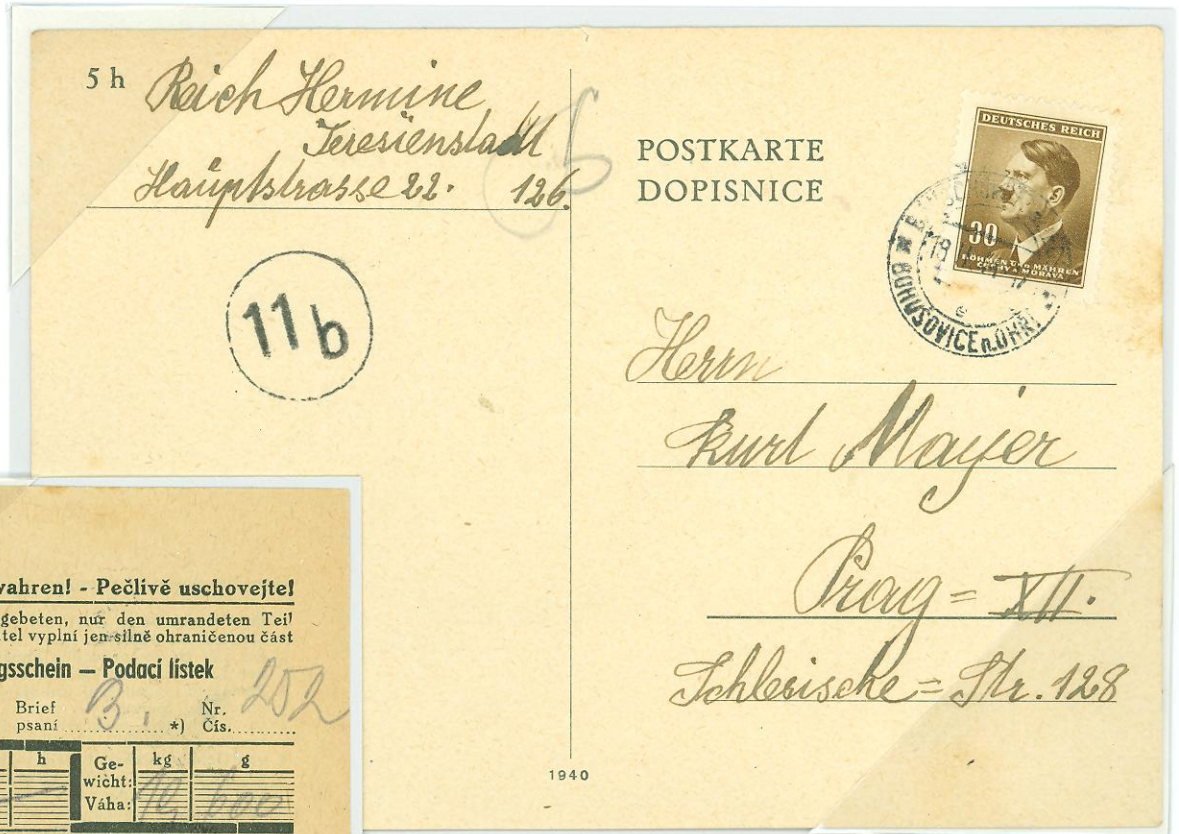 5 h
Reich Hermine
Teresienstadt
Hauptstrasse 22. 126.
11b
POSTKARTE
DOPISNICE
DEUTSCHES REICH
30
BÖHMEN u. MÄHREN
ČECHY a MORAVA
BOHUŠOVICE n. OHŘÍ
Herrn
Kurt Mayer
Prag = XII.
Schlesische = Str. 128
1940
wahren! - Pečlivě uschovejte!
gebeten, nur den umrandeten Teil
tel vyplní jen silně ohraničenou část
gsschein — Podací lístek
Brief
psaní B. *) Nr.
Čís. 252
h Ge-
wicht:
Váha: kg g
10, 600